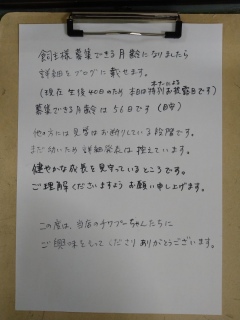 飼主様募集できる月齢になりましたら
詳細をブログに載せます。
(現在 生後40日のため 本日は特別お披露目日です)
募集できる月齢は 56日です (日中)
他の方たは見学はお断りしている段階です。
まだ幼いため詳細発表は控えています。
健やかな成長を見守っているところです。
ご理解くださいますよう お願い申し上げます。
この度は、当店のチワプーちゃんたちに
ご興味をもってくださりありがとうございます。